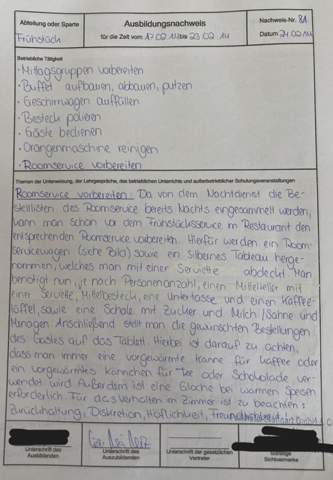 Abteilung oder Sparte
Frühstück
Ausbildungsnachweis
für die Zeit vom 17.02.14 bis 23.02.14
Nachweis-Nr. 81
Datum 24.02.14
Betriebliche Tätigkeit
• Mittagsgruppen vorbereiten
• Buffet aufbauen, abbauen, putzen
• Geschirrwagen auffüllen
• Besteck polieren
• Gäste bedienen
• Orangenmaschine reinigen
• Roomservice vorbereiten
Themen der Unterweisung, der Lehrgespräche, des betrieblichen Unterrichts und außerbetrieblicher Schulungsveranstaltungen
Roomservice vorbereiten: Da von dem Nachtdienst die Be-
stelllisten des Roomservice bereits Nachts eingesammelt werden,
kann man schon vor dem Frühstücksservice im Restaurant den
entsprechenden Roomservice vorbereiten. Hierfür werden ein Room-
servicewagen (siehe Bild) sowie ein Silbernes Tableau herge-
nommen, welches man mit einer Serviette abdeckt. Man
benötigt nun, je nach Personenanzahl, einen Mittelteller mit
einer Serviette, Mittelbesteck, eine Untertasse und einen Kaffee-
löffel, sowie eine Schale mit Zucker und Milch/Sahne und
Menagen. Anschließend stellt man die gewünschten Bestellungen
des Gastes auf das Tablett. Hierbei ist darauf zu achten,
dass man immer eine vorgewärmte Kanne für Kaffee oder
ein vorgewärmtes Kännchen für Tee oder Schokolade ver-
wendet wird. Außerdem ist eine Glocke bei warmen Speisen
erforderlich. Für das Verhalten im Zimmer ist zu beachten:
Zurückhaltung, Diskretion, Höflichkeit, Freundlichkeit
Unterschrift des
Ausbildenden
Unterschrift des
Auszubildenden
Unterschrift der gesetzlichen
Vertreter
Sonstige
Sichtvermerke